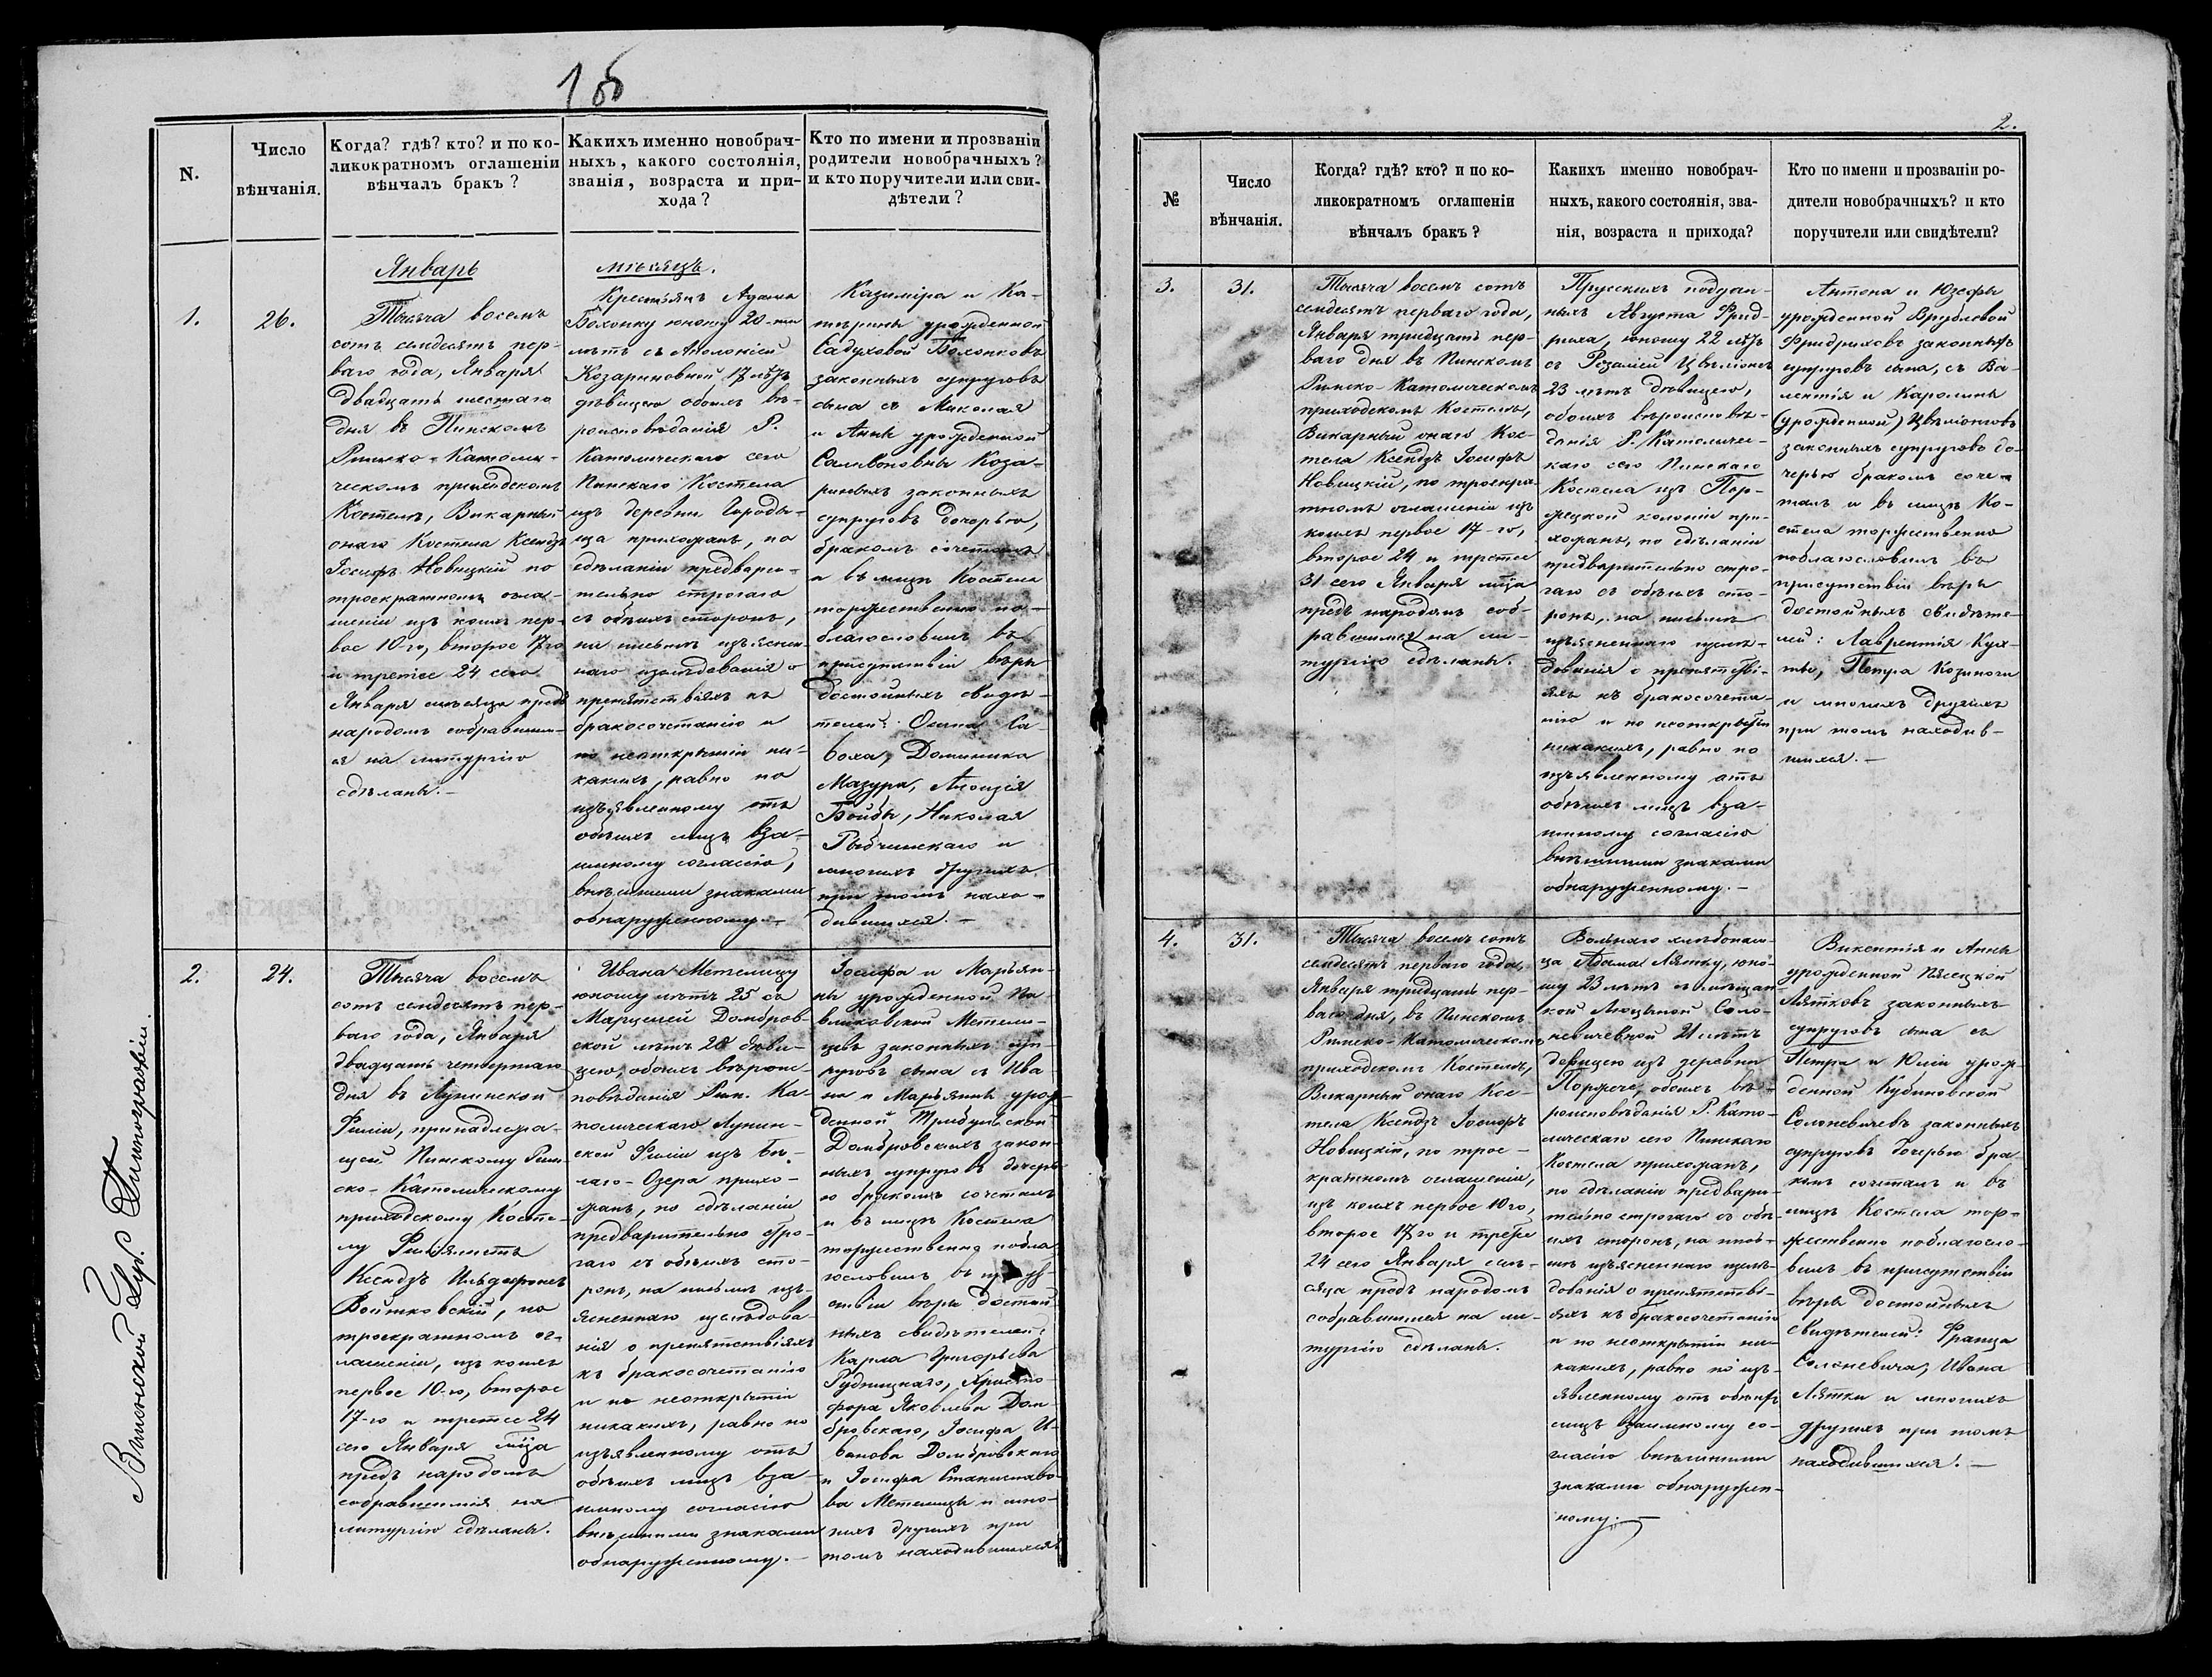 1об
N.
Число
вѣнчанія.
Когда? гдѣ? кто? и по ко-
ликократномъ оглашеніи
вѣнчалъ бракъ?
Какихъ именно новобрач-
ныхъ, какого состоянія,
званія, возраста и при-
хода?
Кто по имени и прозванію
родители новобрачныхъ?
и кто поручители или сви-
дѣтели?
Январь
мѣсяцъ.
1.
26.
Тысяча восемъ
сотъ семдесятъ пер-
ваго года, Января
двадцать шестаго
дня въ Пинскомъ
Римско-Католи-
ческомъ приходскомъ
Костелѣ, Викарный
онаго Костела Ксендзъ
Іосифъ Новицкій по
троекратномъ огла-
шеніи изъ коихъ пер-
вое 10-го, второе 17го
и третее 24 сего
Января мѣсяца предъ
народомъ собравшим-
ся на литургію
сдѣланы.-
Крестьянъ Адама
Бохонку юношу 20-ти
лѣтъ съ Аполоніей
Козариновной 17 лѣтъ
дѣвицею обоихъ вѣ-
роисповѣданія Р.
Католическаго сего
Пинскаго Костела
изъ деревни Городи-
ща прихожанъ, по
сдѣланіи предвари-
тельно строгаго
съ обѣихъ сторонъ,
на письмѣ изъяснен-
наго изслѣдованія о
препятствіяхъ къ
бракосочетанію и
по неоткрытіи ни-
какихъ, равно по
изъявленному отъ
обѣихъ лицъ вза-
имному согласію,
внѣшними знаками
обнаруженному.-
Казиміра и Ка-
терины урожденной
Садуховой Бохонковъ
законныхъ супруговъ
сына съ Миколая
и Анны урожденной
Саливоновны Коза-
риновыхъ законныхъ
супруговъ дочерью,
бракомъ сочеталъ
и въ лицѣ Костела
торжественно по-
благословилъ въ
присутствіи вѣры
достойныхъ свидѣ-
телей: Осипа Са-
боха, Доминика
Мазура, Алоизія
Бойды, Николая
Рыбчинскаго и
многихъ другихъ
при томъ нахо-
дившихся.-
2.
24.
Тысяча восемъ
сотъ семдесятъ пер-
ваго года, Января
двадцать четвертаго
дня въ Лунинской
Филіи, принадлежа-
щей Пинскому Рим-
ско-Католическому
приходскому Косте-
лу Филіялистъ
Ксендзъ Ильдефонсъ
Войтковскій, по
троекратномъ ог-
лашеніи, изъ коихъ
первое 10-го, второе
17-го и третее 24
сего Января мца
предъ народомъ
собравшимся на
литургію сдѣланы.
Ивана Метелицу
юношу лѣтъ 25 съ
Марцелей Домбров-
ской лѣтъ 20 дѣви-
цею, обоихъ вѣроис-
повѣданія Рим. Ка-
толическаго Лунин-
ской Филіи изъ Бѣ-
лаго-Озера прихо-
жанъ, по сдѣланіи
предварительно стро-
гаго съ обѣихъ сто-
ронъ, на письмѣ изъ-
ясненнаго изслѣдова-
нія о препятствіяхъ
къ бракосочетанію
и по неоткрытіи
никакихъ, равно по
изъявленному отъ
обѣихъ лицъ вза-
имному согласію
внѣшними знаками
обнаруженному.-
Іосифа и Марьян-
ны урожденной Па-
вликовской Метели-
цевъ законныхъ суп-
руговъ сына съ Ива-
на и Марьянны урож-
денной Трибульской
Домбровскихъ закон-
ныхъ супруговъ дочерь-
ю бракомъ сочеталъ
и въ лицѣ Костела
торжественно побла-
гословилъ въ присут-
ствіи вѣры достой-
ныхъ свидѣтелей:
Карла Григорьева
Рудницкаго, Христо-
фора Яковлева Дом-
бровскаго, Іосифа И-
ванова Домбровскаго
и Іосифа Станиславо-
ва Метелицы и мно-
гихъ другихъ при
томъ находившихся
Виленской Губ. Типографіи.
2.
№
Число
вѣнчанія.
Когда? гдѣ? кто? и по ко-
ликократномъ оглашеніи
вѣнчалъ бракъ?
Какихъ именно новобрач-
ныхъ, какого состоянія, зва-
нія, возраста и прихода?
Кто по имени и прозваніи ро-
дители новобрачныхъ? и кто
поручители или свидѣтели?
3.
31.
Тысяча восемъ сотъ
семдесятъ перваго года,
Января тридцать пер-
ваго дня въ Пинскомъ
Римско-Католическомъ
приходскомъ Костелѣ,
Викарный онаго Кос-
тела Ксендзъ Іосифъ
Новицкій, по троекра-
тномъ оглашеніи изъ
коихъ первое 17-го,
второе 24 и третее
31 сего Января мца
предъ народомъ соб-
равшимся на ли-
тургію сдѣланы.
Прусскихъ поддан-
ныхъ Августа Фрид-
риха, юношу 22 лѣтъ
съ Розаліей Цвѣліонгъ
23 лѣтъ дѣвицею,
обоихъ вѣроисповѣ-
данія Р. Католичес-
каго сего Пинскаго
Костела изъ Пор-
жецкой колоніи при-
хожанъ, по сдѣланіи
предварительно стро-
гаго съ обѣихъ сто-
ронъ, на письмѣ
изъясненнаго изслѣ-
дованія о препятстві-
яхъ къ бракосочета-
нію и по неоткрытіи
никакихъ, равно по
изъявленному отъ
обѣихъ лицъ вза-
имному согласію
внѣшними знаками
обнаруженному.-
Антона и Юзефы
урожденной Врублевой
Фридриховъ законныхъ
супруговъ сына, съ Ва-
лентія и Каролины
(урожденной) Цвѣліонговъ
законныхъ супруговъ до-
черью бракомъ соче-
талъ и въ лицѣ Ко-
стела торжественно
поблагословилъ въ
присутствіи вѣры
достойныхъ свидѣте-
лей: Лаврентія Кух-
ты, Петра Козиноги
и многихъ другихъ
при томъ находив-
шихся.-
4.
31.
Тысяча восемъ сотъ
семдесятъ перваго года,
Января тридцать пер-
ваго дня, въ Пинскомъ
Римско-Католическомъ
приходскомъ Костелѣ,
Викарный онаго Кос-
тела Ксендзъ Іосифъ
Новицкій, по трое-
кратномъ оглашеніи,
изъ коихъ первое 10го,
второе 17го и третее
24 сего Января мѣ-
сяца предъ народомъ
собравшимся на ли-
тургію сдѣланы.
Вольнаго хлѣбопаш-
ца Адама Лятку, юно-
шу 23 лѣтъ съ мѣщан-
кой Люцыной Соло-
невичевной 21 лѣтъ
дѣвицею изъ деревни
Поржече, обоихъ вѣ-
роисповѣданія Р. Като-
лическаго сего Пинскаго
Костела прихожанъ,
по сдѣланіи предвари-
тельно строгаго съ обѣ-
ихъ сторонъ, на пись-
мѣ изъясненнаго изслѣ-
дованія о препятстві-
яхъ къ бракосочетанію
и по неоткрытіи ни-
какихъ, равно по изъ-
явленному отъ обѣихъ
лицъ взаимному со-
гласію внѣшними
знаками обнаружен-
ному.-
Викентія и Анны
урожденной Пясецкой
Лятковъ законныхъ
супруговъ сына съ
Петра и Юліи урож-
денной Кубиковской
Солоневичевъ законныхъ
супруговъ дочерью бра-
комъ сочеталъ и въ
лицѣ Костела тор-
жественно поблагосло-
вилъ въ присутствіи
вѣры достойныхъ
свидѣтелей: Франца
Солоневича, Ивана
Лятки и многихъ
другихъ при томъ
находившихся.-